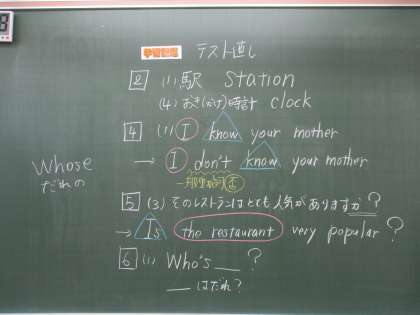 学習課題 テスト直し
2 (1)駅 Station
(4)おき(かけ)時計 clock
4 (1) I know your mother
→ I don't know your mother
一般動詞 否
Whose
だれの
5 (3) そのレストランはとても人気がありますか?
→ Is the restaurant very popular ?
6 (1) Who's __ ?
__ はだれ?